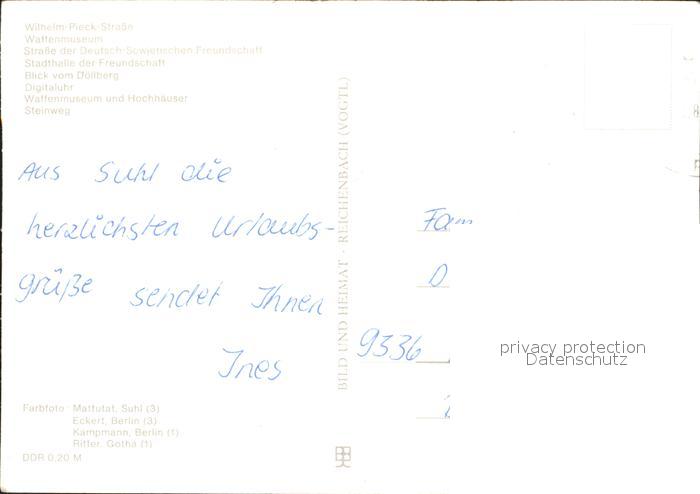 Wilhelm-Pieck-Straße
Waffenmuseum
Straße der Deutsch-Sowjetischen Freundschaft
Stadthalle der Freundschaft
Blick vom Döllberg
Digitaluhr
Waffenmuseum und Hochhäuser
Steinweg
Aus Suhl die
herzlichsten Urlaubs-
grüße sendet Ihnen
Ines
Farbfoto: Mattutat, Suhl (3)
Eckert, Berlin (3)
Kampmann, Berlin (1)
Ritter, Gotha (1)
DDR 0,20 M
BILD UND HEIMAT · REICHENBACH (VOGTL)
Fam
D
9336
privacy protection
Datenschutz